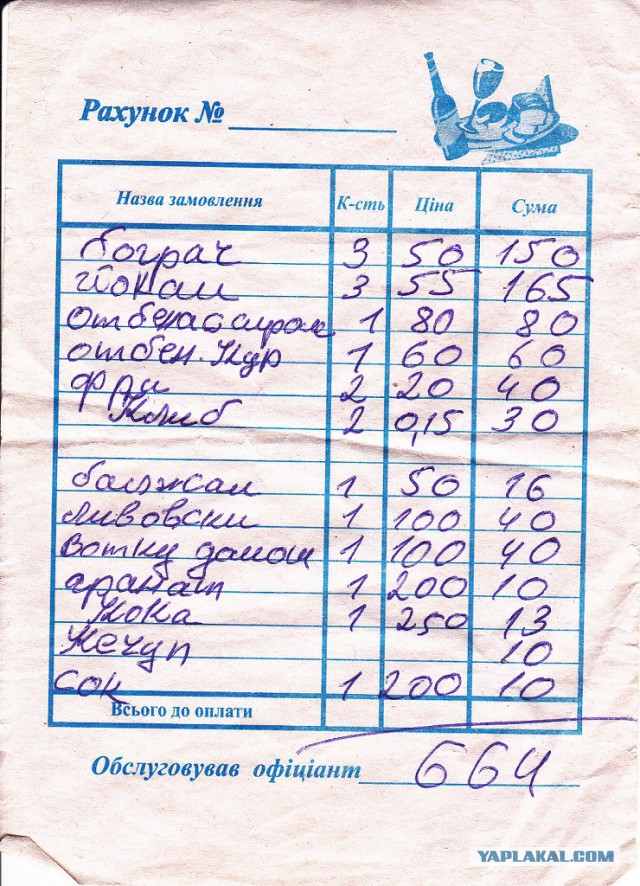 Рахунок №
Назва замовлення К-сть Ціна Сума
бограч 3 50 150
токаш 3 55 165
1 80 80
отбен. Кур 1 60 60
фри 2 20 40
Хлиб 2 0,15 30
бальзам 1 50 16
Львовски 1 100 40
вотку домаш 1 100 40
аранат 1 200 10
Кока 1 250 13
Кечуп 10
сок 1 200 10
Всього до оплати
Обслуговував офіціант 664
YAPLAKAL.COM